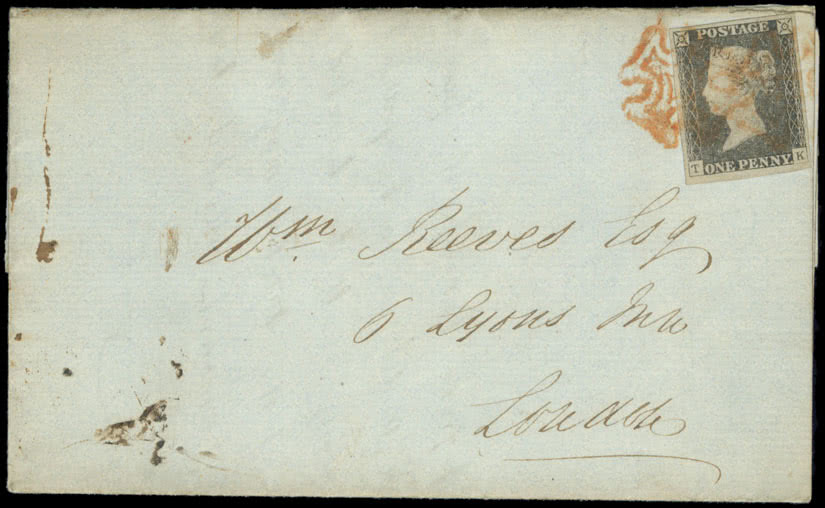 POSTAGE
T ONE PENNY K
Wm Reeves Esq
6 Lyons Inn
London